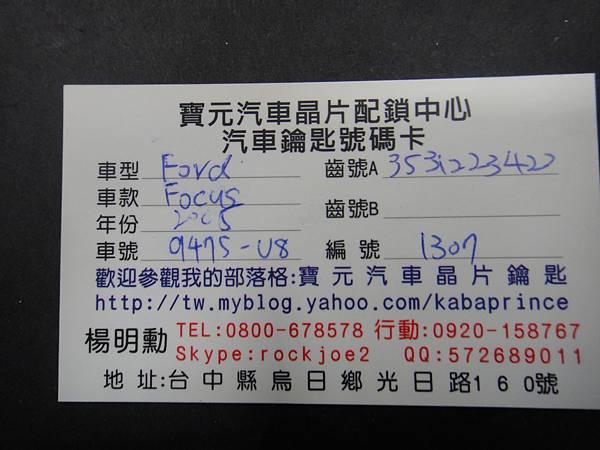 寶元汽車晶片配鎖中心
汽車鑰匙號碼卡
車型 Ford 齒號A 3531223422
車款 Focus
年份 2005 齒號B
車號 9475-U8 編號 1307
歡迎參觀我的部落格:寶元汽車晶片鑰匙
http://tw.myblog.yahoo.com/kabaprince
楊明勳 TEL:0800-678578 行動:0920-158767
Skype:rockjoe2 QQ:572689011
地址:台中縣烏日鄉光日路160號